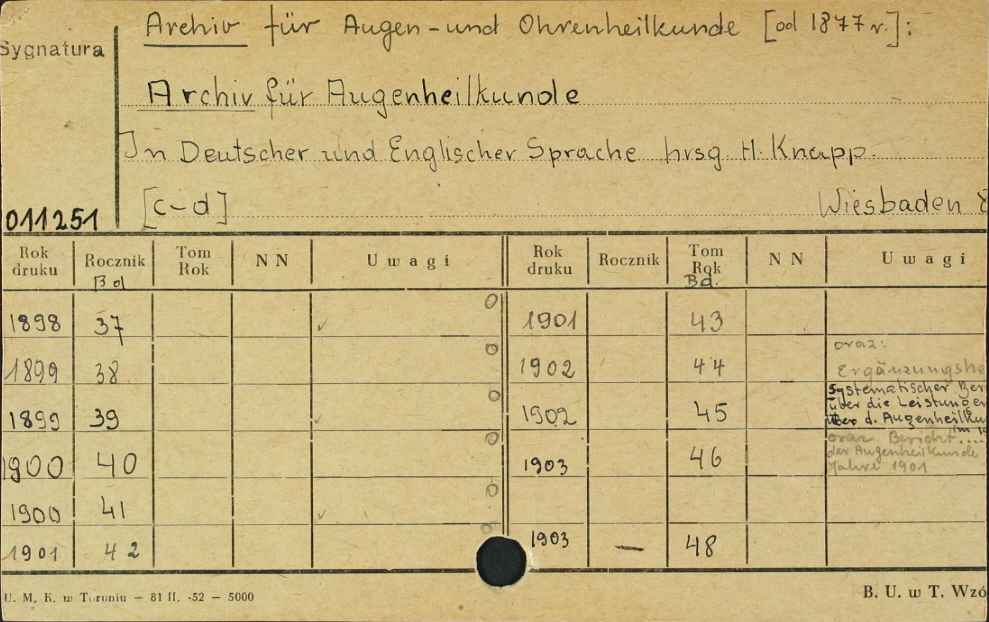 Archiv für Augen-und Ohrenheilkunde [od 1877 r.]:
Sygnatura
Archiv für Augenheilkunde
In Deutscher und Englischer Sprache hrsg H. Knapp.
011251 [c-d] Wiesbaden
Rok druku Rocznik Bd Tom Rok N N Uwagi Rok druku Rocznik Tom Rok Bd. N N Uwagi
1898 37 1901 43
1899 38 1902 44 oraz:
1899 39 1902 45
1900 40 1903 46
1900 41
1901 42 1903 — 48
Systematischer
über die
über d.
oraz Bericht....
der Augenheilkunde
Jahre 1901
U. M. K. w Toruniu — 81 II. -52 — 5000 B. U. w T.